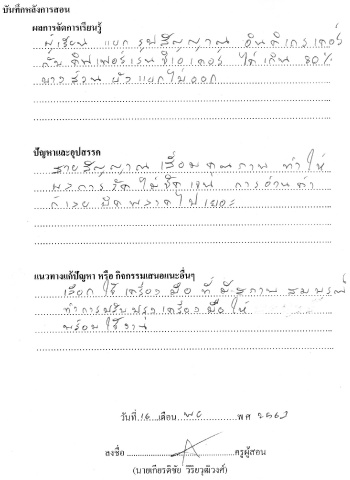 บันทึกหลังการสอน
ผลการจัดการเรียนรู้
ผู้เรียน แยก รูปสัญญาณ อินทิเกรเตอร์
กับ ดิฟเฟอร์เรนชิเอเตอร์ ได้ เกิน 80%
บางส่วน ยังแยกไม่ออก
ปัญหาและอุปสรรค
สายสัญญาณ เสื่อมคุณภาพ ทำให้
ผลการวัด ไม่ชัดเจน การอ่านค่า
ก็เลย ผิดพลาดไปเยอะ
แนวทางแก้ปัญหา หรือ กิจกรรมเสนอแนะอื่นๆ
เลือกใช้ เครื่องมือ ที่ มีสภาพ สมบูรณ์
ทำการปรับปรุงเครื่องมือให้
พร้อมใช้งาน
วันที่ 16 เดือน พย พศ 2563
ลงชื่อ ครูผู้สอน
(นายเกียรติชัย วิริยวุฒิวงศ์)